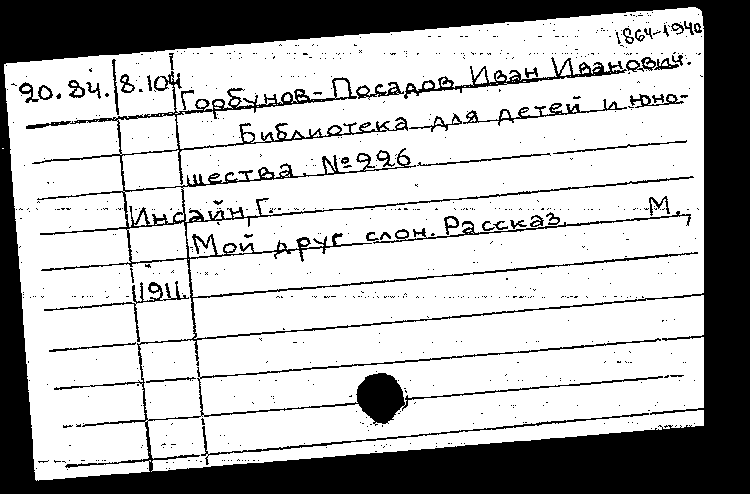 1864-1940
20.84. 8.104
Горбунов-Посадов, Иван Иванович.
Библиотека для детей и юно-
шества. №226.
Инсайн, Г.
Мой друг слон. Рассказ. М.,
1911.